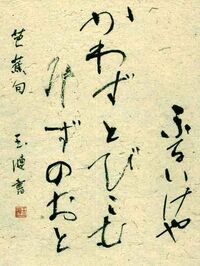 ふるいけや
かわずとびこむ
みずのおと
芭蕉句
玉渡書